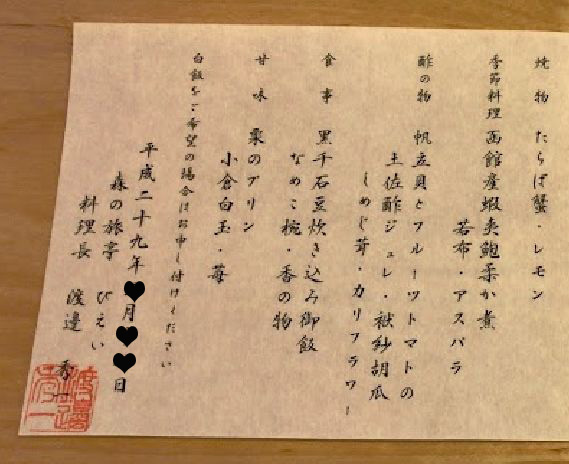 焼物 たらば蟹・レモン
季節料理 函館産蝦夷鮑柔か煮
若布・アスパラ
酢の物 帆立貝とフルーツトマトの
土佐酢ジュレ・袱紗胡瓜
しめじ茸・カリフラワー
食事 黒千石豆炊き込み御飯
なめこ椀・香の物
甘味 栗のプリン
小倉白玉・苺
白飯をご希望の場合はお申し付けください
平成二十九年 月 日
森の旅亭 びえい
料理長 渡邉 秀一